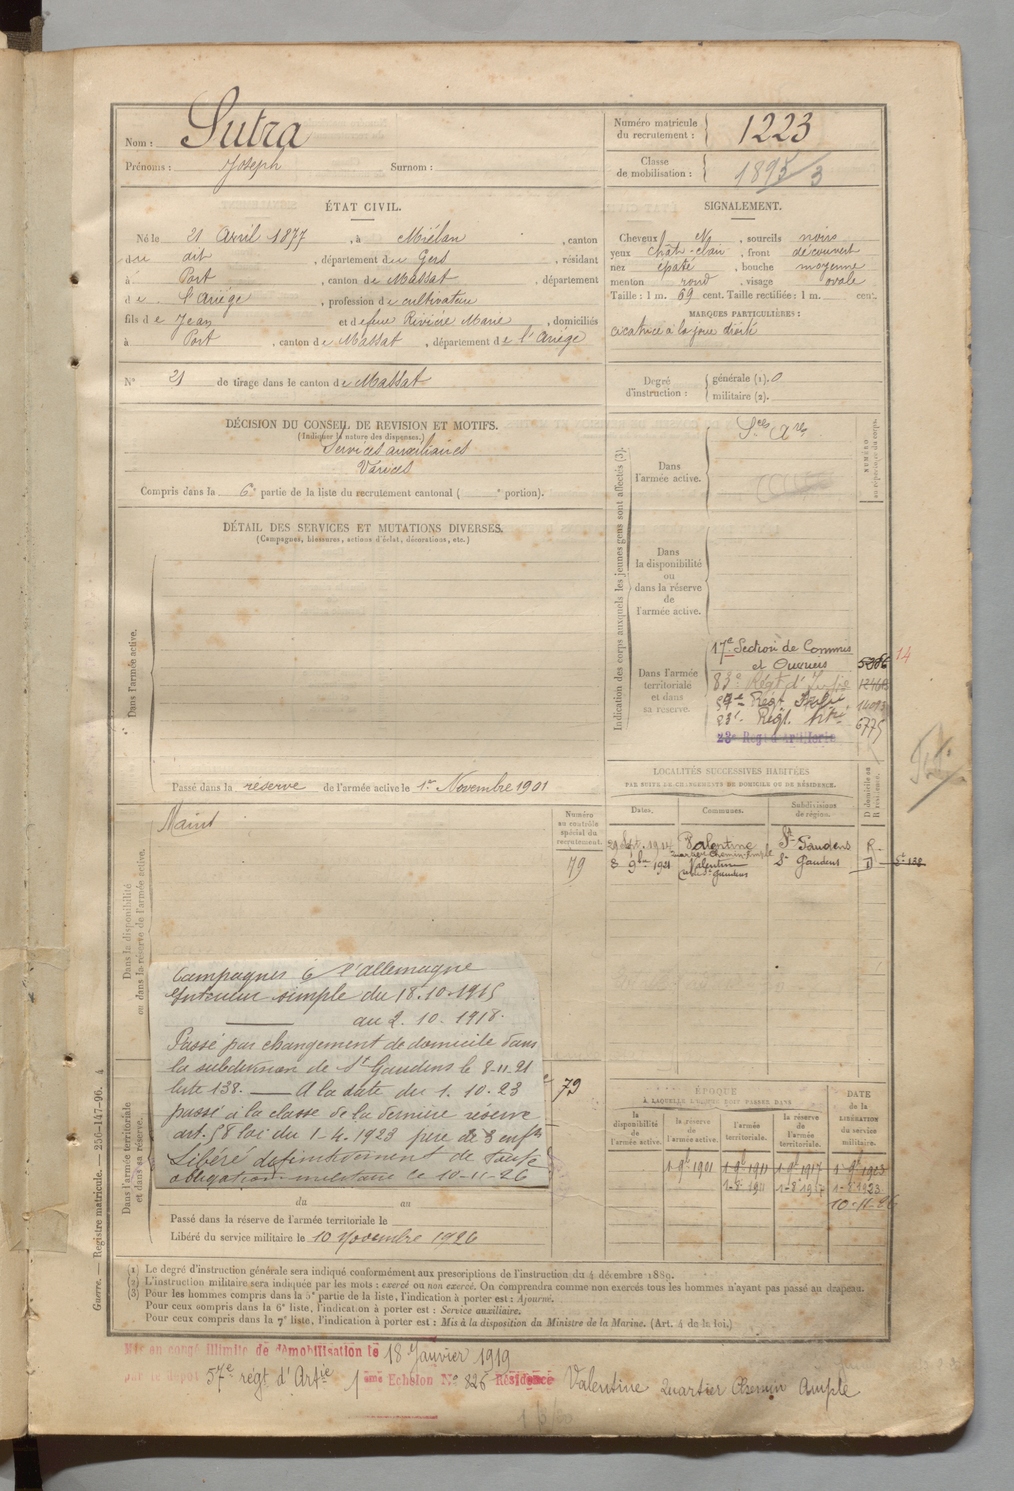 Nom : Sutra
Prénoms : Joseph Surnom :
Numéro matricule du recrutement : 1223
Classe de mobilisation : 1893
ÉTAT CIVIL.
Né le 21 Avril 1877, à Miélan, canton
du dit, département du Gers, résidant
à Port, canton de Massat, département
de l'Ariége, profession de cultivateur
fils de Jean et de feue Rivière Marie, domiciliés
à Port, canton de Massat, département de l'Ariége
SIGNALEMENT.
Cheveux N, sourcils noirs
yeux chât-clair, front découvert
nez épaté, bouche moyenne
menton rond, visage ovale
Taille : 1 m. 69 cent. Taille rectifiée : 1 m. cent.
MARQUES PARTICULIÈRES :
cicatrice à la joue droite
N° 21 de tirage dans le canton de Massat
Degré d'instruction : générale (1). 0
militaire (2).
DÉCISION DU CONSEIL DE REVISION ET MOTIFS.
(Indiquer la nature des dispenses.)
Services auxiliaires
Varices
Compris dans la 6e partie de la liste du recrutement cantonal ( e portion).
DÉTAIL DES SERVICES ET MUTATIONS DIVERSES.
(Campagnes, blessures, actions d'éclat, décorations, etc.)
Dans l'armée active.
Passé dans la réserve de l'armée active le 1er Novembre 1901
Indication des corps auxquels les jeunes gens sont affectés (3).
NUMÉRO au répertoire du corps.
Dans l'armée active.
Sces Ares
Dans la disponibilité ou dans la réserve de l'armée active.
Dans l'armée territoriale et dans sa réserve.
17e Section de Commis
et Ouvriers 5386 14
83e Régt d'Infie
57e Régt Artie
23e Régt Artie 6775
23e Régt d'Artillerie
LOCALITÉS SUCCESSIVES HABITÉES
PAR SUITE DE CHANGEMENTS DE DOMICILE OU DE RÉSIDENCE.
D domicile ou R résidence.
Dates. Communes. Subdivisions de région.
29 Sept. 1914 Valentine St Gaudens R
quartier Chemin Ample
8 9bre 1921 Valentine St Gaudens D St 138
Dans la disponibilité ou dans la réserve de l'armée active.
Numéro au contrôle spécial du recrutement.
79
Campagnes c l'Allemagne
Intérieur simple du 18.10.1915
au 2.10.1918.
Passé par changement de domicile dans
la subdivision de St Gaudens le 8-11-21
liste 138. — A la date du 1.10.23
passé à la classe de la dernière réserve
art. 58 loi du 1-4.1923 père de 3 enfts
Libéré définitivement de toute
obligation militaire le 10-11-26
79
Dans l'armée territoriale et dans sa réserve.
du au
Passé dans la réserve de l'armée territoriale le
Libéré du service militaire le 10 novembre 1926
ÉPOQUE
À LAQUELLE L'HOMME DOIT PASSER DANS
la disponibilité de l'armée active. la réserve de l'armée active. l'armée territoriale. la réserve de l'armée territoriale. DATE de la LIBÉRATION du service militaire.
1-9bre 1901 1-9bre 1911 1-9bre 1917 1-9bre 1923
1-8-1911 1-8-1917 1-8-1923
10-11-26
(1) Le degré d'instruction générale sera indiqué conformément aux prescriptions de l'instruction du 4 décembre 1889.
(2) L'instruction militaire sera indiquée par les mots : exercé ou non exercé. On comprendra comme non exercés tous les hommes n'ayant pas passé au drapeau.
(3) Pour les hommes compris dans la 5e partie de la liste, l'indication à porter est : Ajourné.
Pour ceux compris dans la 6e liste, l'indication à porter est : Service auxiliaire.
Pour ceux compris dans la 7e liste, l'indication à porter est : Mis à la disposition du Ministre de la Marine. (Art. 4 de la loi.)
Guerre. — Registre matricule. — 256-147-96. 4
Mis en congé illimité de démobilisation le 18 Janvier 1919
par le dépôt 57e régt d'Artie 1ème Echelon N° 826 Résidence Valentine Quartier Chemin Ample